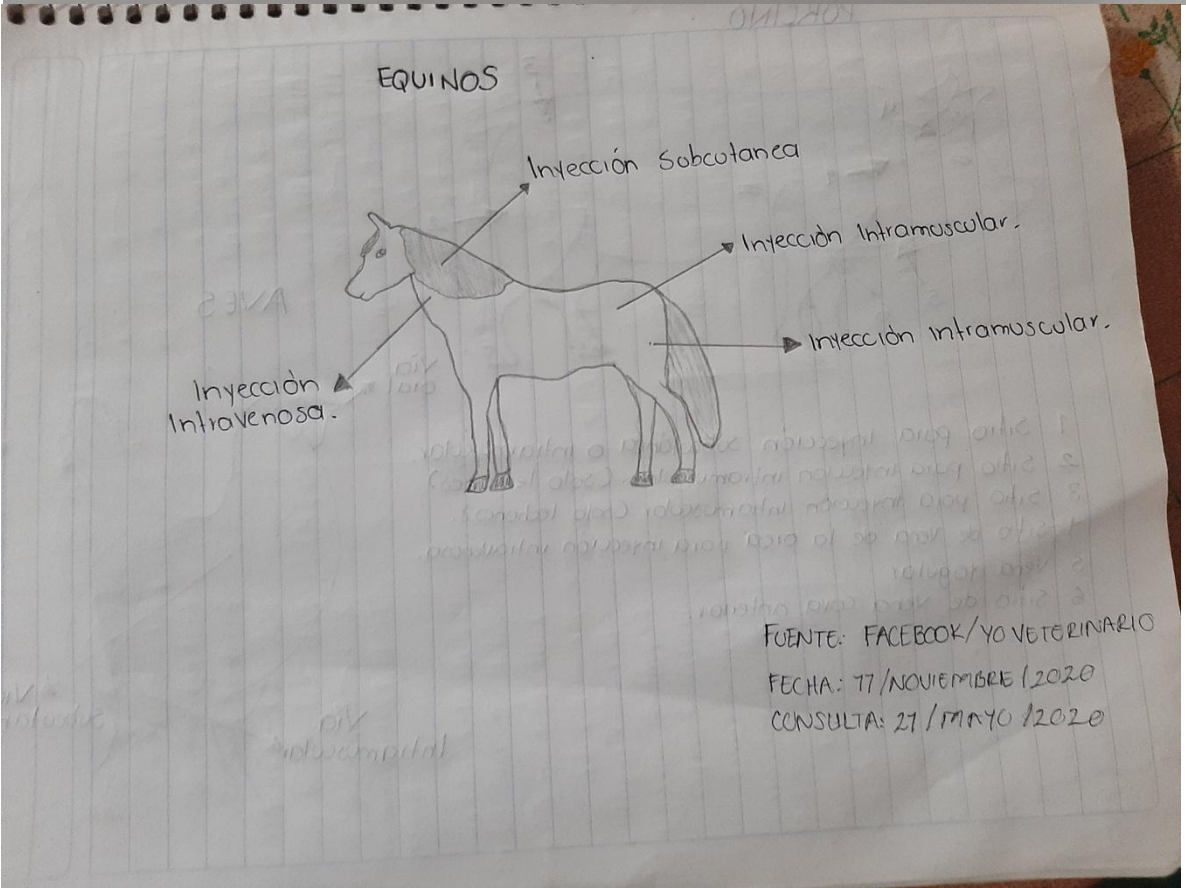 EQUINOS
Inyección Subcotanea
Inyección Intramuscular.
Inyección intramuscular.
Inyección
Intravenosa.
FUENTE: FACEBOOK/YO VETERINARIO
FECHA: 17/NOVIEMBRE/2020
CONSULTA: 27/MAYO/2020